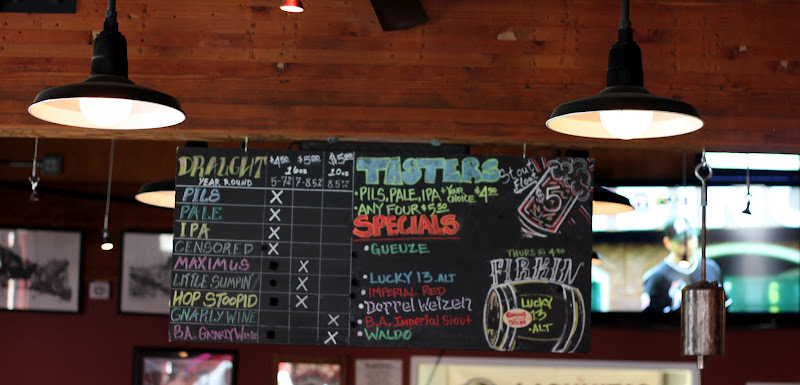 DRAUGHT $4.50 $5.00 $5.00
16oz 10oz
YEAR ROUND 5-7% 7-8.5% 8.5%
PILS X
PALE X
IPA X
CENSORED X
MAXIMUS X
LITTLE SUMPIN' X
HOP STOOPID X
GNARLYWINE X
B.A. GNARLYWINE X
TASTERS
• PILS, PALE, IPA + YOUR CHOICE $4.50
• ANY FOUR $5.50
SPECIALS
• GUEUZE
• LUCKY 13.ALT
• IMPERIAL RED
• Doppel Weizen
• B.A. Imperial Stout
• WALDO
Stout
Float
$5
THURS @ 4:30
FIRKIN
LUCKY
13
.ALT